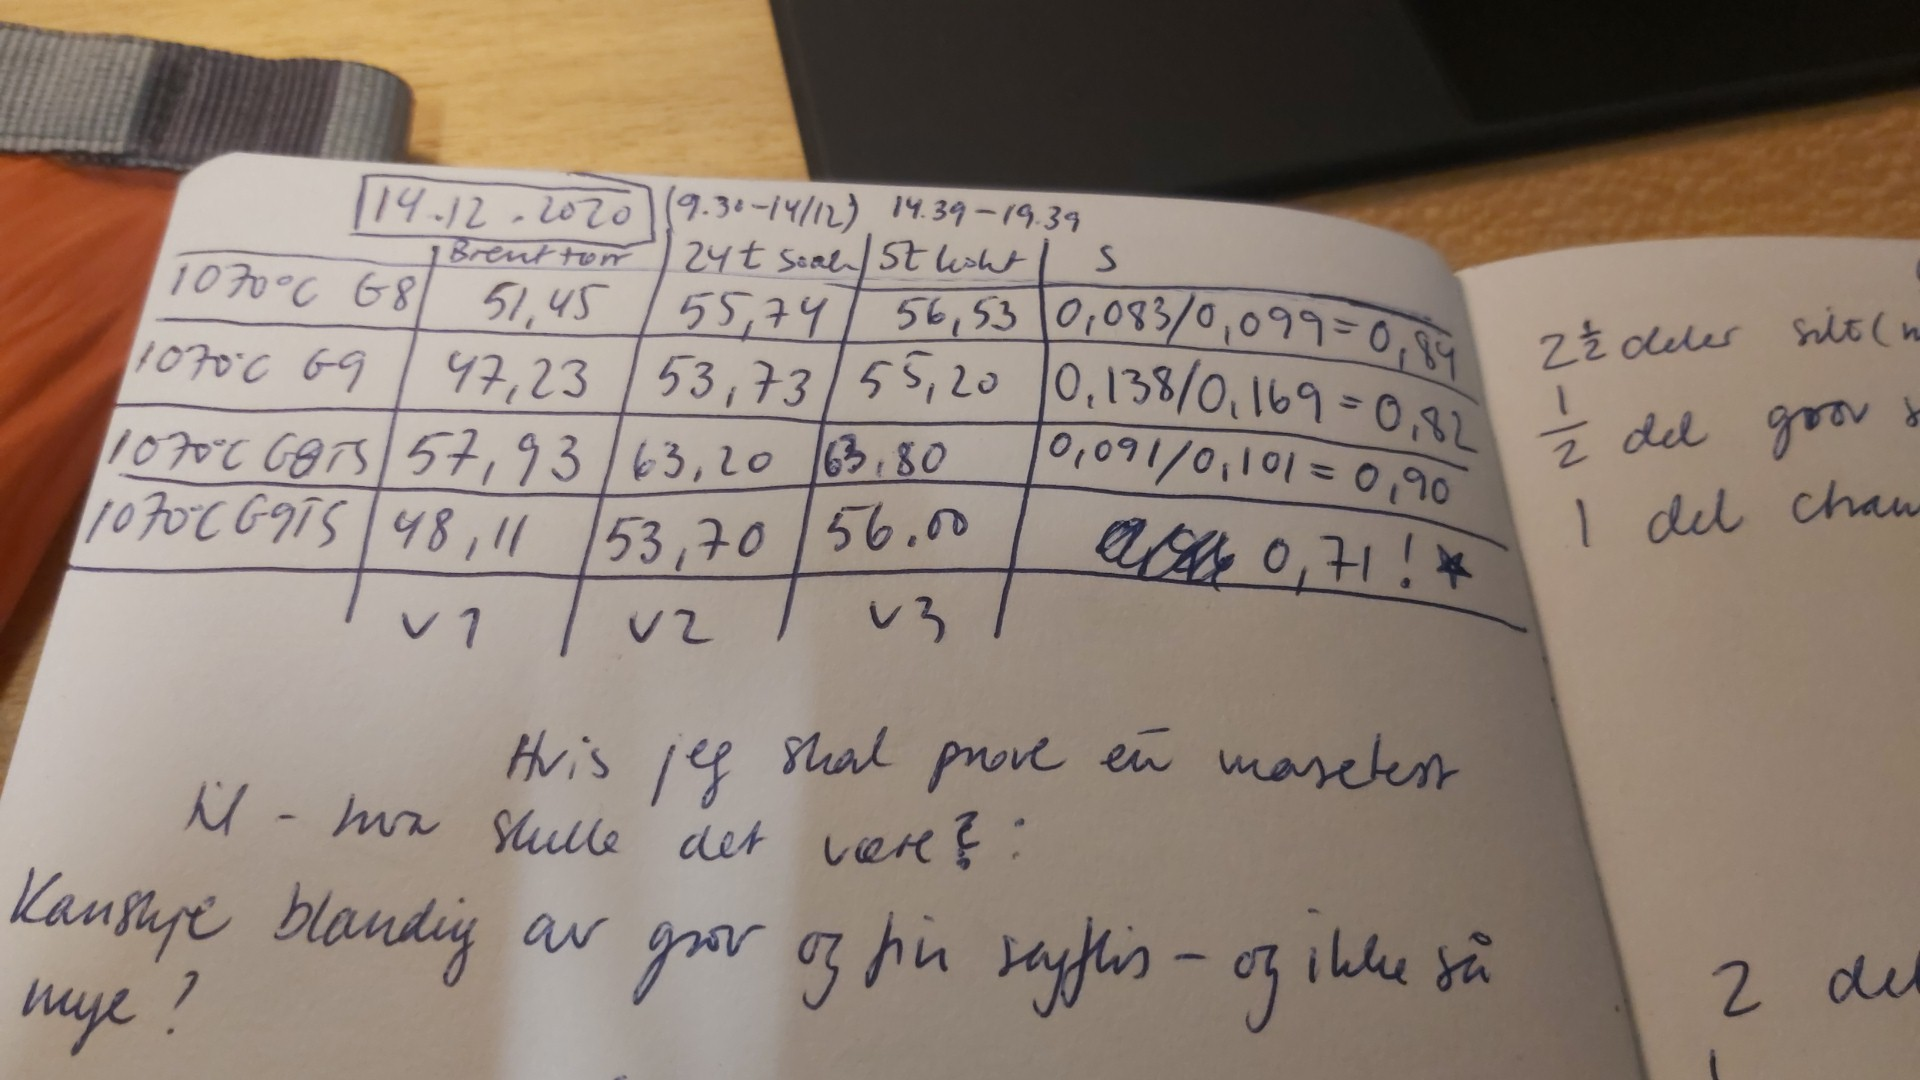 14.12.2020 (9.30-14/12) 14.39-19.39
Brent tørr 24t soak 5t kokt S
1070°C G8 51,45 55,74 56,53 0,083/0,099=0,84
1070°C G9 47,23 53,73 55,20 0,138/0,169=0,82
1070°C G8TS 57,93 63,20 63,80 0,091/0,101=0,90
1070°C G9TS 48,11 53,70 56.00 0,71! ★
v1 v2 v3
Hvis jeg skal prøve en
til - hva skulle det være?:
Kanskje blanding av grov og fin sagflis - og ikke så
mye?
2½ deler silt
½ del grov
1 del
2 del